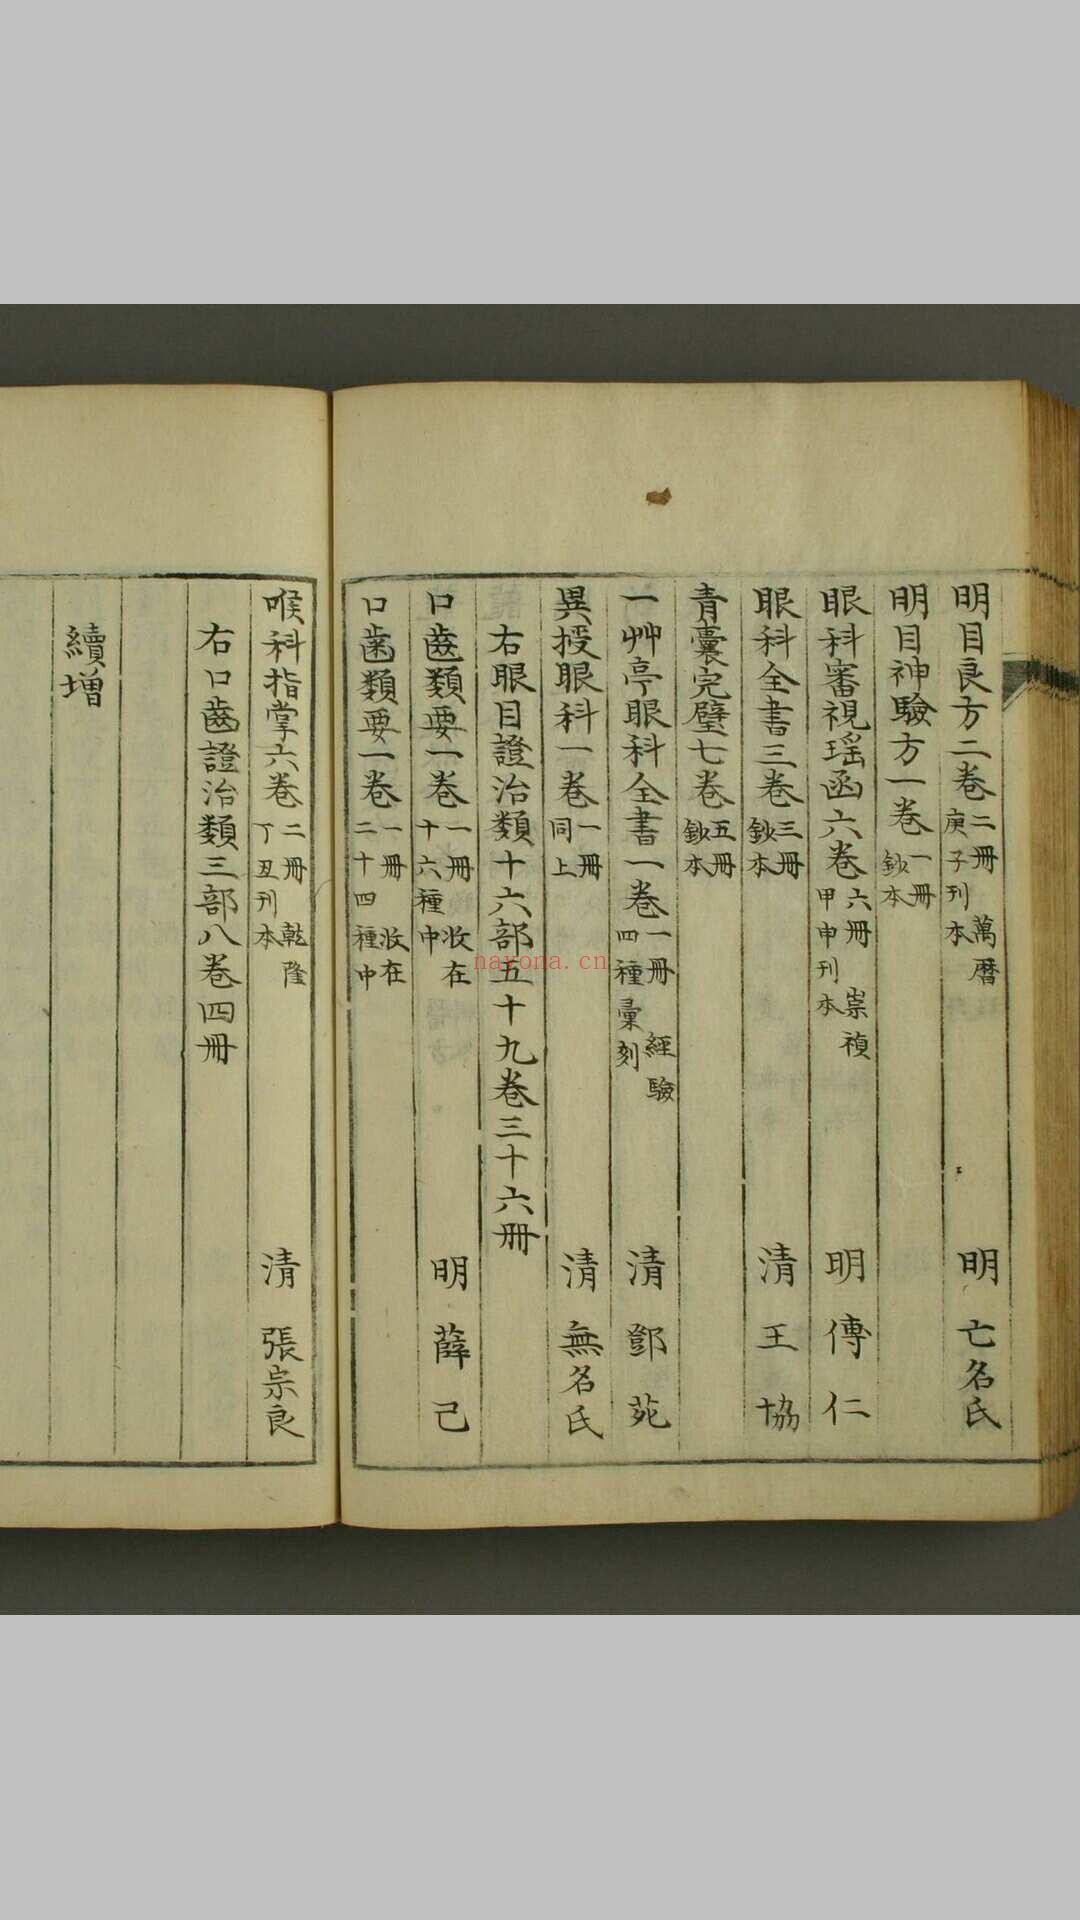 明目良方二卷 二冊 萬曆庚子刊本 明 亡名氏
明目神驗方一卷 一冊 鈔本
眼科審視瑶函六卷 六冊 崇禎甲申刊本 明 傅仁
眼科全書三卷 三冊 鈔本 清 王協
青囊完璧七卷 五冊 鈔本
一艸亭眼科全書一卷 一冊 經驗四種彙刻 清 鄧苑
異授眼科一卷 一冊 同上 清 無名氏
右眼目證治類十六部五十九卷三十六冊
口齒類要一卷 一冊 收在十六種中 明 薛己
口齒類要一卷 一冊 收在二十四種中
喉科指掌六卷 二冊 乾隆丁丑刊本 清 張宗良
右口齒證治類三部八卷四冊
續增
nayona.cn